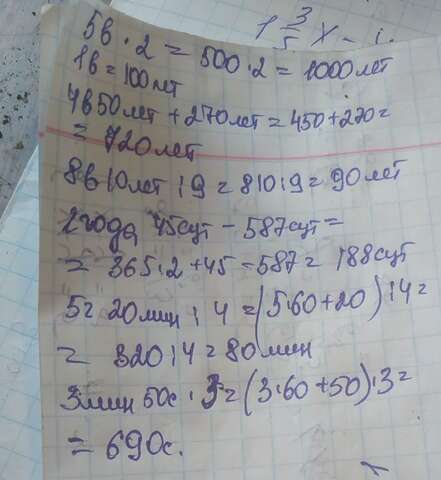 1 3/5 x -
5в · 2 = 500 · 2 = 1000 лет
1в = 100 лет
4в 50 лет + 270 лет = 450 + 270 =
= 720 лет
8в 10 лет : 9 = 810 : 9 = 90 лет
2 года 45 сут - 587 сут =
= 365 · 2 + 45 - 587 = 188 сут
5г 20 мин : 4 = (5 · 60 + 20) : 4 =
= 320 : 4 = 80 мин
3 мин 50с · 3 = (3 · 60 + 50) · 3 =
= 690с.